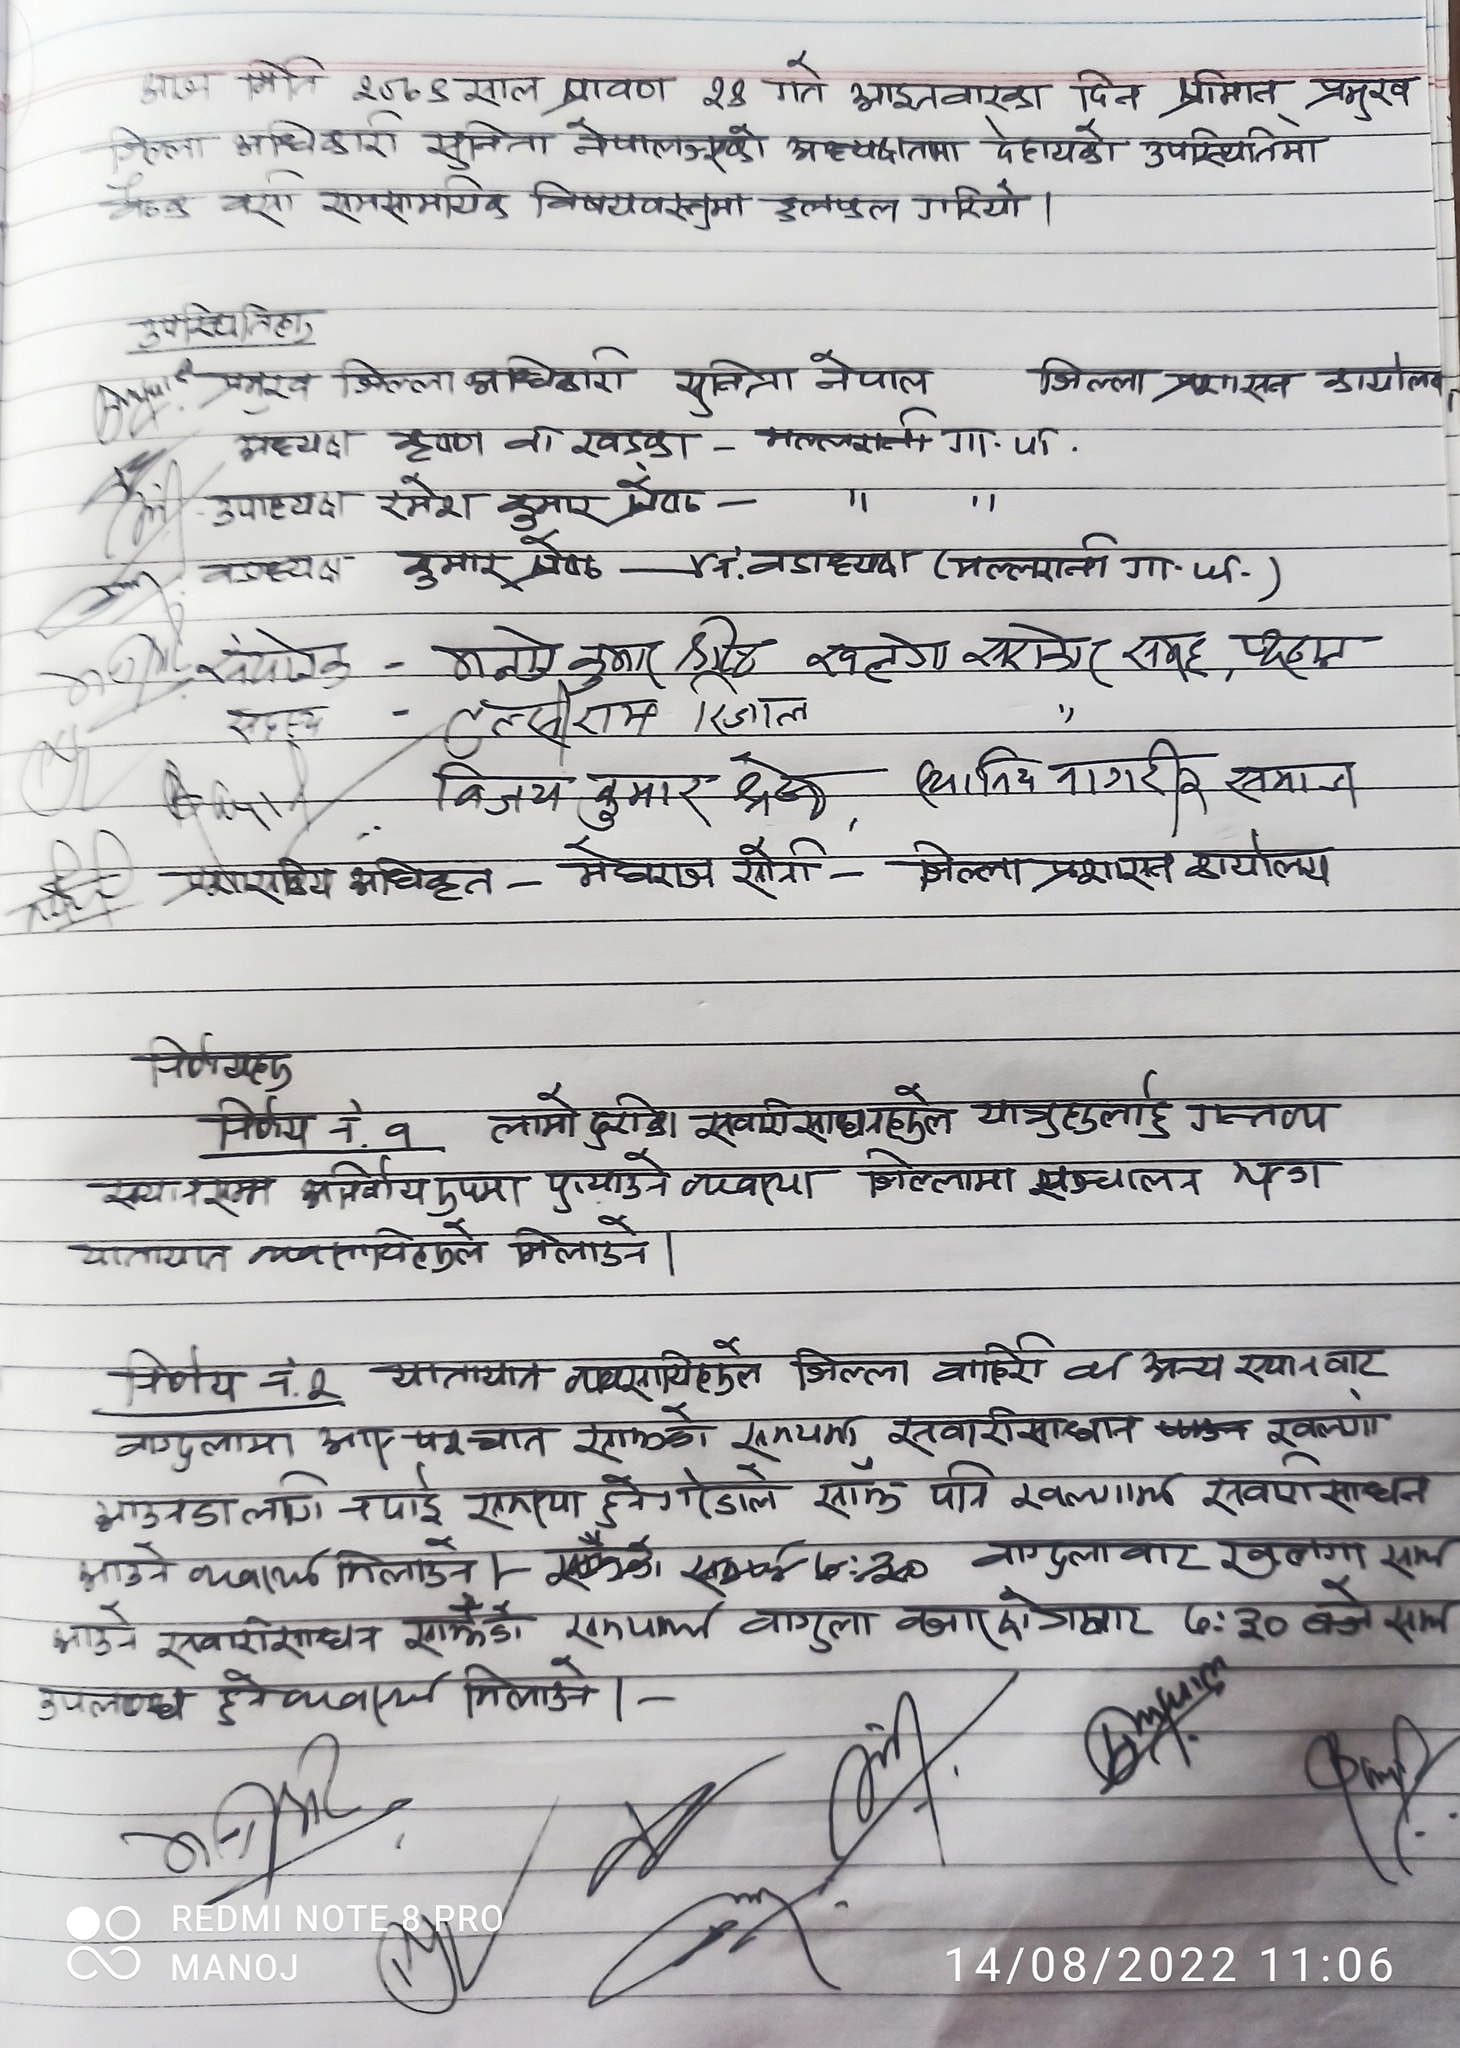 आज मिति २०७९ साल श्रावण २९ गते आइतवारका दिन श्रीमान् प्रमुख
जिल्ला अधिकारी सुनिता नेपालज्यूको अध्यक्षतामा देहायको उपस्थितिमा
बैठक बसी समसामयिक विषयवस्तुमा छलफल गरियो।
उपस्थितिहरु
प्रमुख जिल्ला अधिकारी सुनिता नेपाल जिल्ला प्रशासन कार्यालय
अध्यक्ष कृष्ण वी खड्का - मल्लरानी गा.पा.
उपाध्यक्ष रमेश कुमार श्रेष्ठ - " "
वडाध्यक्ष कुमार श्रेष्ठ - वडाध्यक्ष (मल्लरानी गा.पा.)
संयोजक - मनोज कुमार श्रेष्ठ खलंगा सरोकार समूह, प्यूठान
सदस्य - तुलसीराम रिजाल "
विजय कुमार श्रेष्ठ, स्थानिय नागरीक समाज
प्रशासकिय अधिकृत - मेघराज सोती - जिल्ला प्रशासन कार्यालय
निर्णयहरु
निर्णय नं. १ लामो दुरीका सवारी साधनहरुले यात्रुहरुलाई गन्तव्य
स्थानसम्म अनिर्वाय रुपमा पुर्‍याउने व्यवस्था जिल्लामा सञ्चालन
यातायात व्यवसायिहरुले मिलाउने।
निर्णय नं. २ यातायात व्यवसायिहरुले जिल्ला वाहिरी वा अन्य स्थानवाट
वाग्दुलामा आए पश्चात साझको समयमा सवारी साधान खलंगा
आउनका लागि नपाई समस्या हुने गरेकाले साँझ पनि खलंगामा सवारी साधन
आउने व्यवस्था मिलाउने।- वाग्दुलावाट खलंगा सम्म
आउने सवारी साधन साँझको समयमा वाग्दुला वजार क्षेत्रबाट ७:३० बजे सम्म
उपलव्ध हुने व्यवस्था मिलाउने।-
REDMI NOTE 8 PRO
MANOJ
14/08/2022 11:06